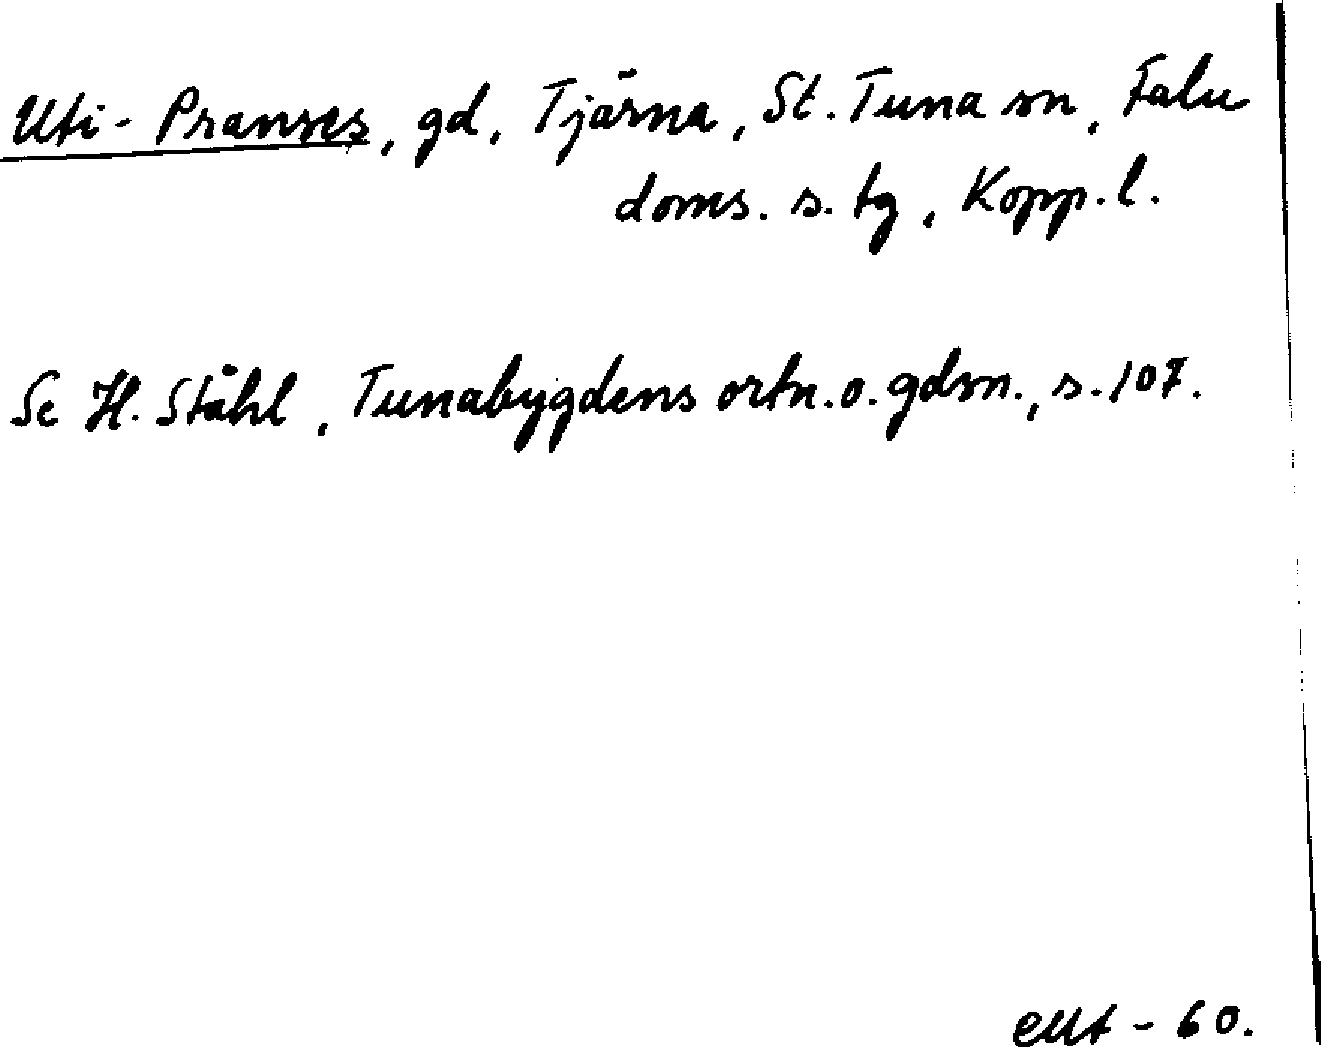 Uti-Pranses, gd, Tjärna, St. Tuna sn, Falu
doms. s. tg, Kopp. l.
Se H. Ståhl, Tunabygdens ortn. o. gdsn., s. 107.
- 60.